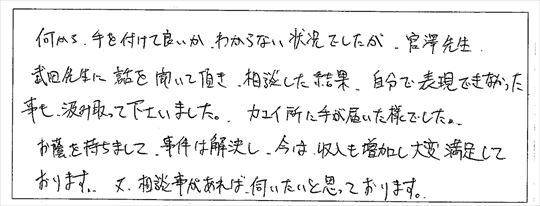 何から、手を付けて良いか、わからない状況でしたが、宮澤先生、
武田先生に話を聞いて頂き、相談した結果、自分で表現できなかった
事も、汲み取って下さいました。カユイ所に手が届いた様でした。
お蔭を持ちまして、事件は解決し、今は、収入も増加し大変満足して
おります。又、相談事があれば、伺いたいと思っております。